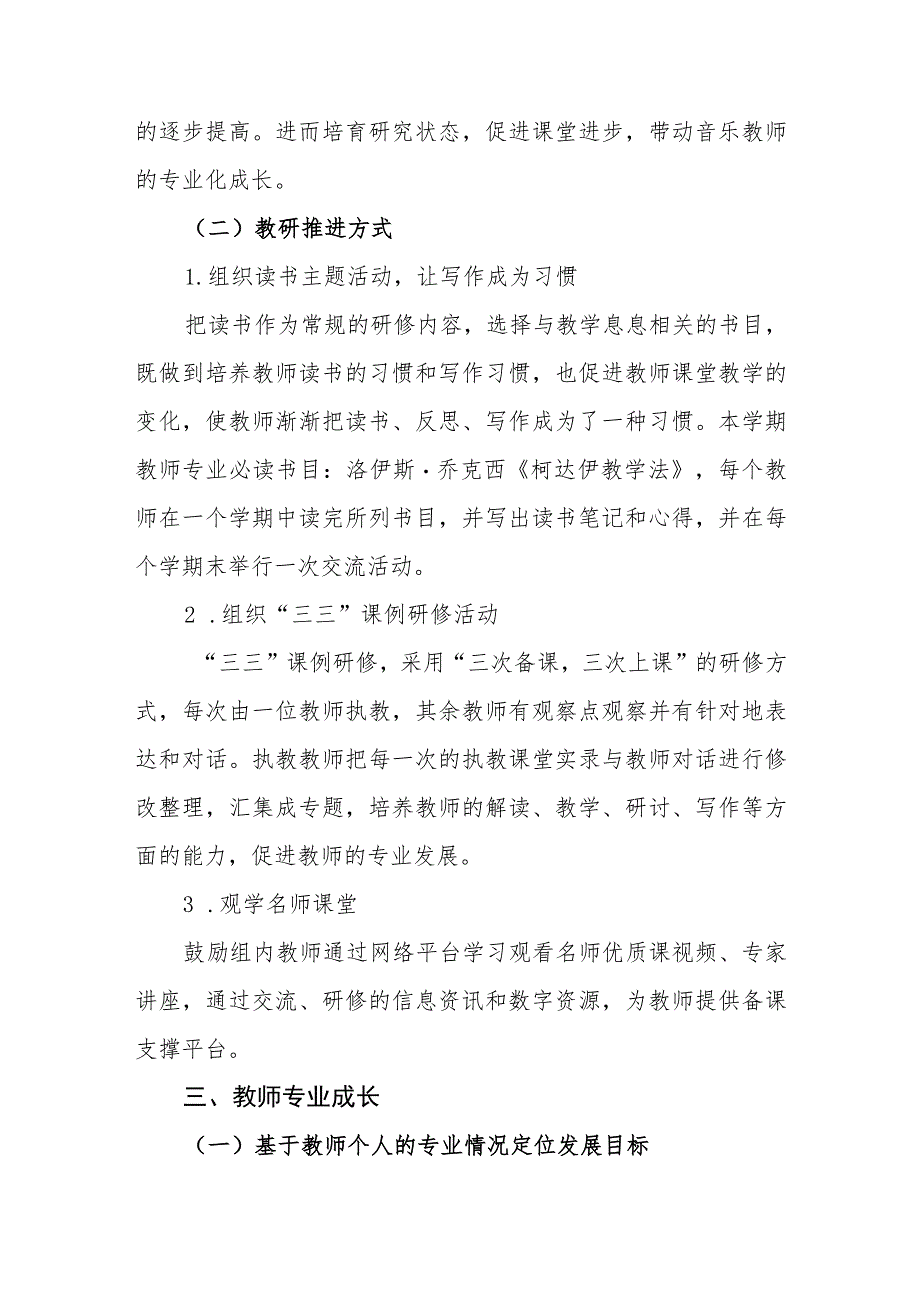 的逐步提高。进而培育研究状态，促进课堂进步，带动音乐教师
的专业化成长。
（二）教研推进方式
1.组织读书主题活动，让写作成为习惯
把读书作为常规的研修内容，选择与教学息息相关的书目，
既做到培养教师读书的习惯和写作习惯，也促进教师课堂教学的
变化，使教师渐渐把读书、反思、写作成为了一种习惯。本学期
教师专业必读书目：洛伊斯·乔克西《柯达伊教学法》，每个教
师在一个学期中读完所列书目，并写出读书笔记和心得，并在每
个学期末举行一次交流活动。
2 .组织“三三”课例研修活动
“三三”课例研修，采用“三次备课，三次上课”的研修方
式，每次由一位教师执教，其余教师有观察点观察并有针对地表
达和对话。执教教师把每一次的执教课堂实录与教师对话进行修
改整理，汇集成专题，培养教师的解读、教学、研讨、写作等方
面的能力，促进教师的专业发展。
3 .观学名师课堂
鼓励组内教师通过网络平台学习观看名师优质课视频、专家
讲座，通过交流、研修的信息资讯和数字资源，为教师提供备课
支撑平台。
三、教师专业成长
（一）基于教师个人的专业情况定位发展目标